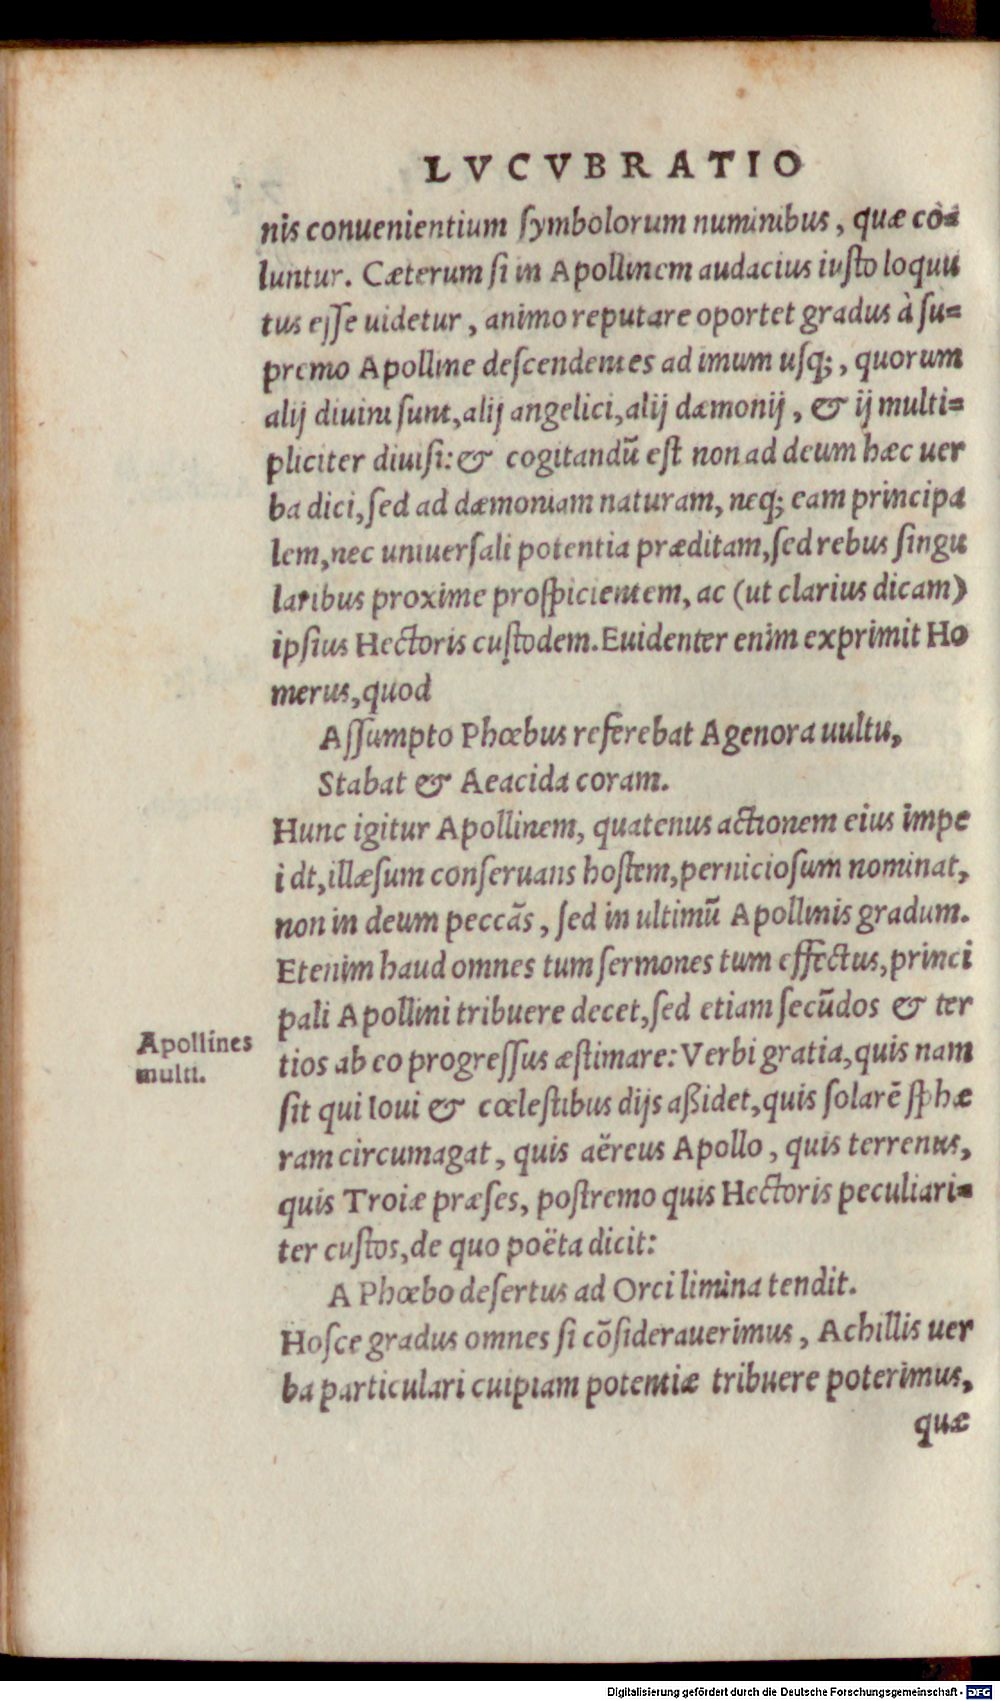 LVCVBRATIO
nis conuenientium ſymbolorum numinibus, quæ co-
luntur. Cæterum ſi in Apollinem audacius iuſto loquu
tus eſſe uidetur, animo reputare oportet gradus à ſu-
premo Apolline deſcendentes ad imum uſq;, quorum
alij diuini ſunt, alij angelici, alij dæmonij, & ij multi-
pliciter diuiſi: & cogitandũ eſt non ad deum hæc uer
ba dici, ſed ad dæmoniam naturam, neq; eam principa
lem, nec uniuerſali potentia præditam, ſed rebus ſingu
laribus proxime proſpicientem, ac (ut clarius dicam)
ipſius Hectoris cuſtodem. Euidenter enim exprimit Ho
merus, quod
Aſſumpto Phœbus referebat Agenora uultu,
Stabat & Aeacida coram.
Hunc igitur Apollinem, quatenus actionem eius impe
i dt, illæſum conſeruans hoſtem, pernicioſum nominat,
non in deum peccãs, ſed in ultimũ Apollinis gradum.
Etenim haud omnes tum ſermones tum effectus, princi
pali Apollini tribuere decet, ſed etiam ſecũdos & ter
tios ab eo progreſſus æſtimare: Verbi gratia, quis nam
ſit qui Ioui & cœleſtibus dijs aßidet, quis ſolarẽ ſphæ
ram circumagat, quis aëreus Apollo, quis terrenus,
quis Troiæ præſes, poſtremo quis Hectoris peculiari-
ter cuſtos, de quo poëta dicit:
A Phœbo deſertus ad Orci limina tendit.
Hoſce gradus omnes ſi cõſiderauerimus, Achillis uer
ba particulari cuipiam potentiæ tribuere poterimus,
quæ
Apollines
multi.
Digitalisierung gefördert durch die Deutsche Forschungsgemeinschaft - DFG